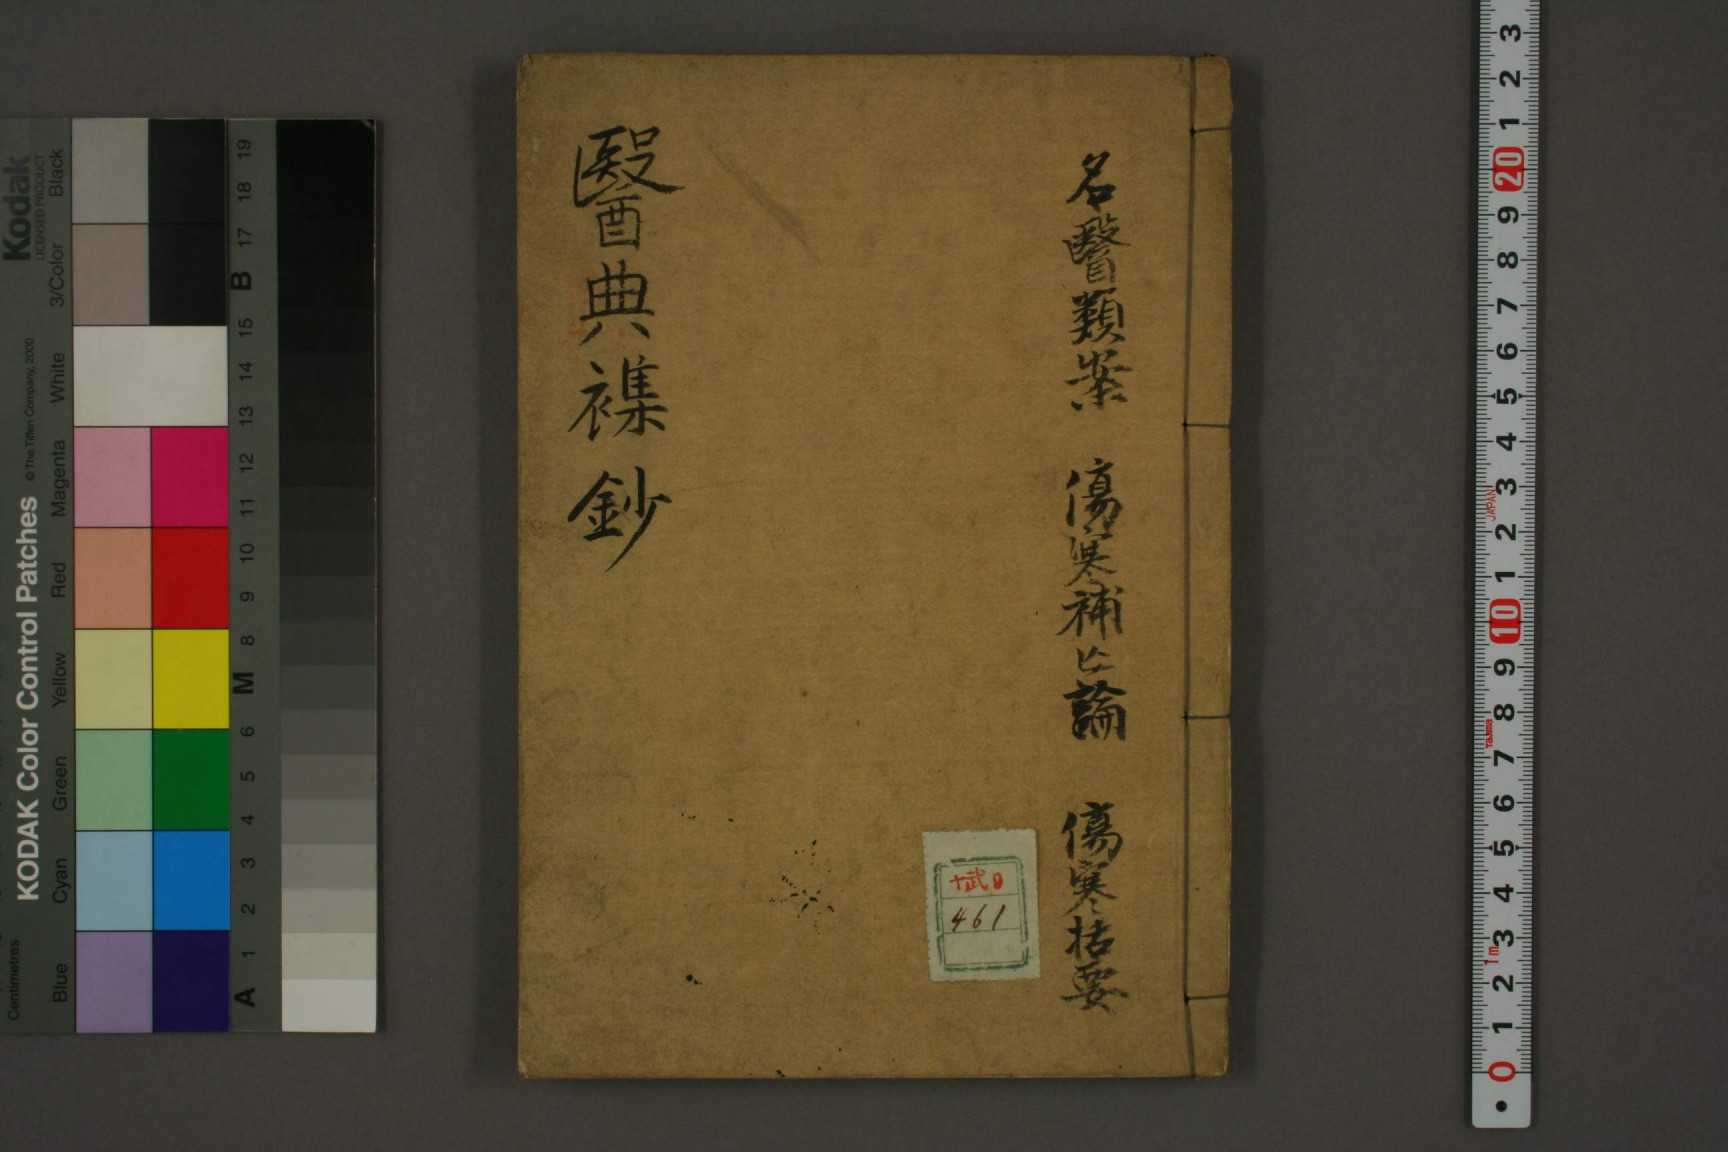 名醫類案 傷寒補亡論 傷寒括要
醫典襍鈔
461
Kodak
LICENSED PRODUCT
KODAK Color Control Patches
© The Tiffen Company, 2000
Centimetres
Blue Cyan Green Yellow Red Magenta White 3/Color Black
A 1 2 3 4 5 6 M 8 9 10 11 12 13 14 15 B 17 18 19
0 1 2 3 4 5 6 7 8 9 10 1 2 3 4 5 6 7 8 9 20 1 2 3
1m
JAPAN